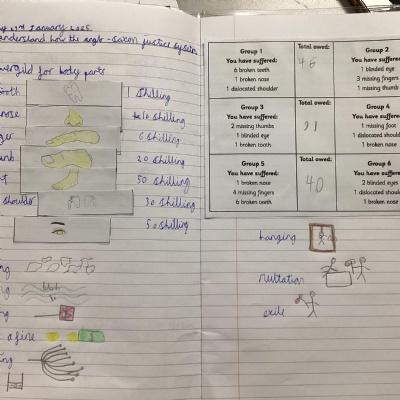 January 2025
understand how the anglo-saxon justice system
wergild for body parts
tooth 1 shilling
nose 10 shilling
ger 6 shilling
umb 20 shilling
50 shilling
shoulder 30 shilling
50 shilling
ng
ng
ng
a fine
ing
Group 1
You have suffered:
6 broken teeth
1 broken nose
1 dislocated shoulder
Total owed:
46
Group 2
You have suffered
1 blinded eye
3 missing fingers
1 missing thumb
Group 3
You have suffered:
2 missing thumbs
1 blinded eye
1 broken tooth
Total owed:
91
Group 4
You have suffered
1 missing foot
1 dislocated should
1 broken nose
Group 5
You have suffered:
1 broken nose
4 missing fingers
6 broken teeth
Total owed:
40
Group 6
You have suffered
2 blinded eyes
1 dislocated should
1 broken nose
hanging
exile